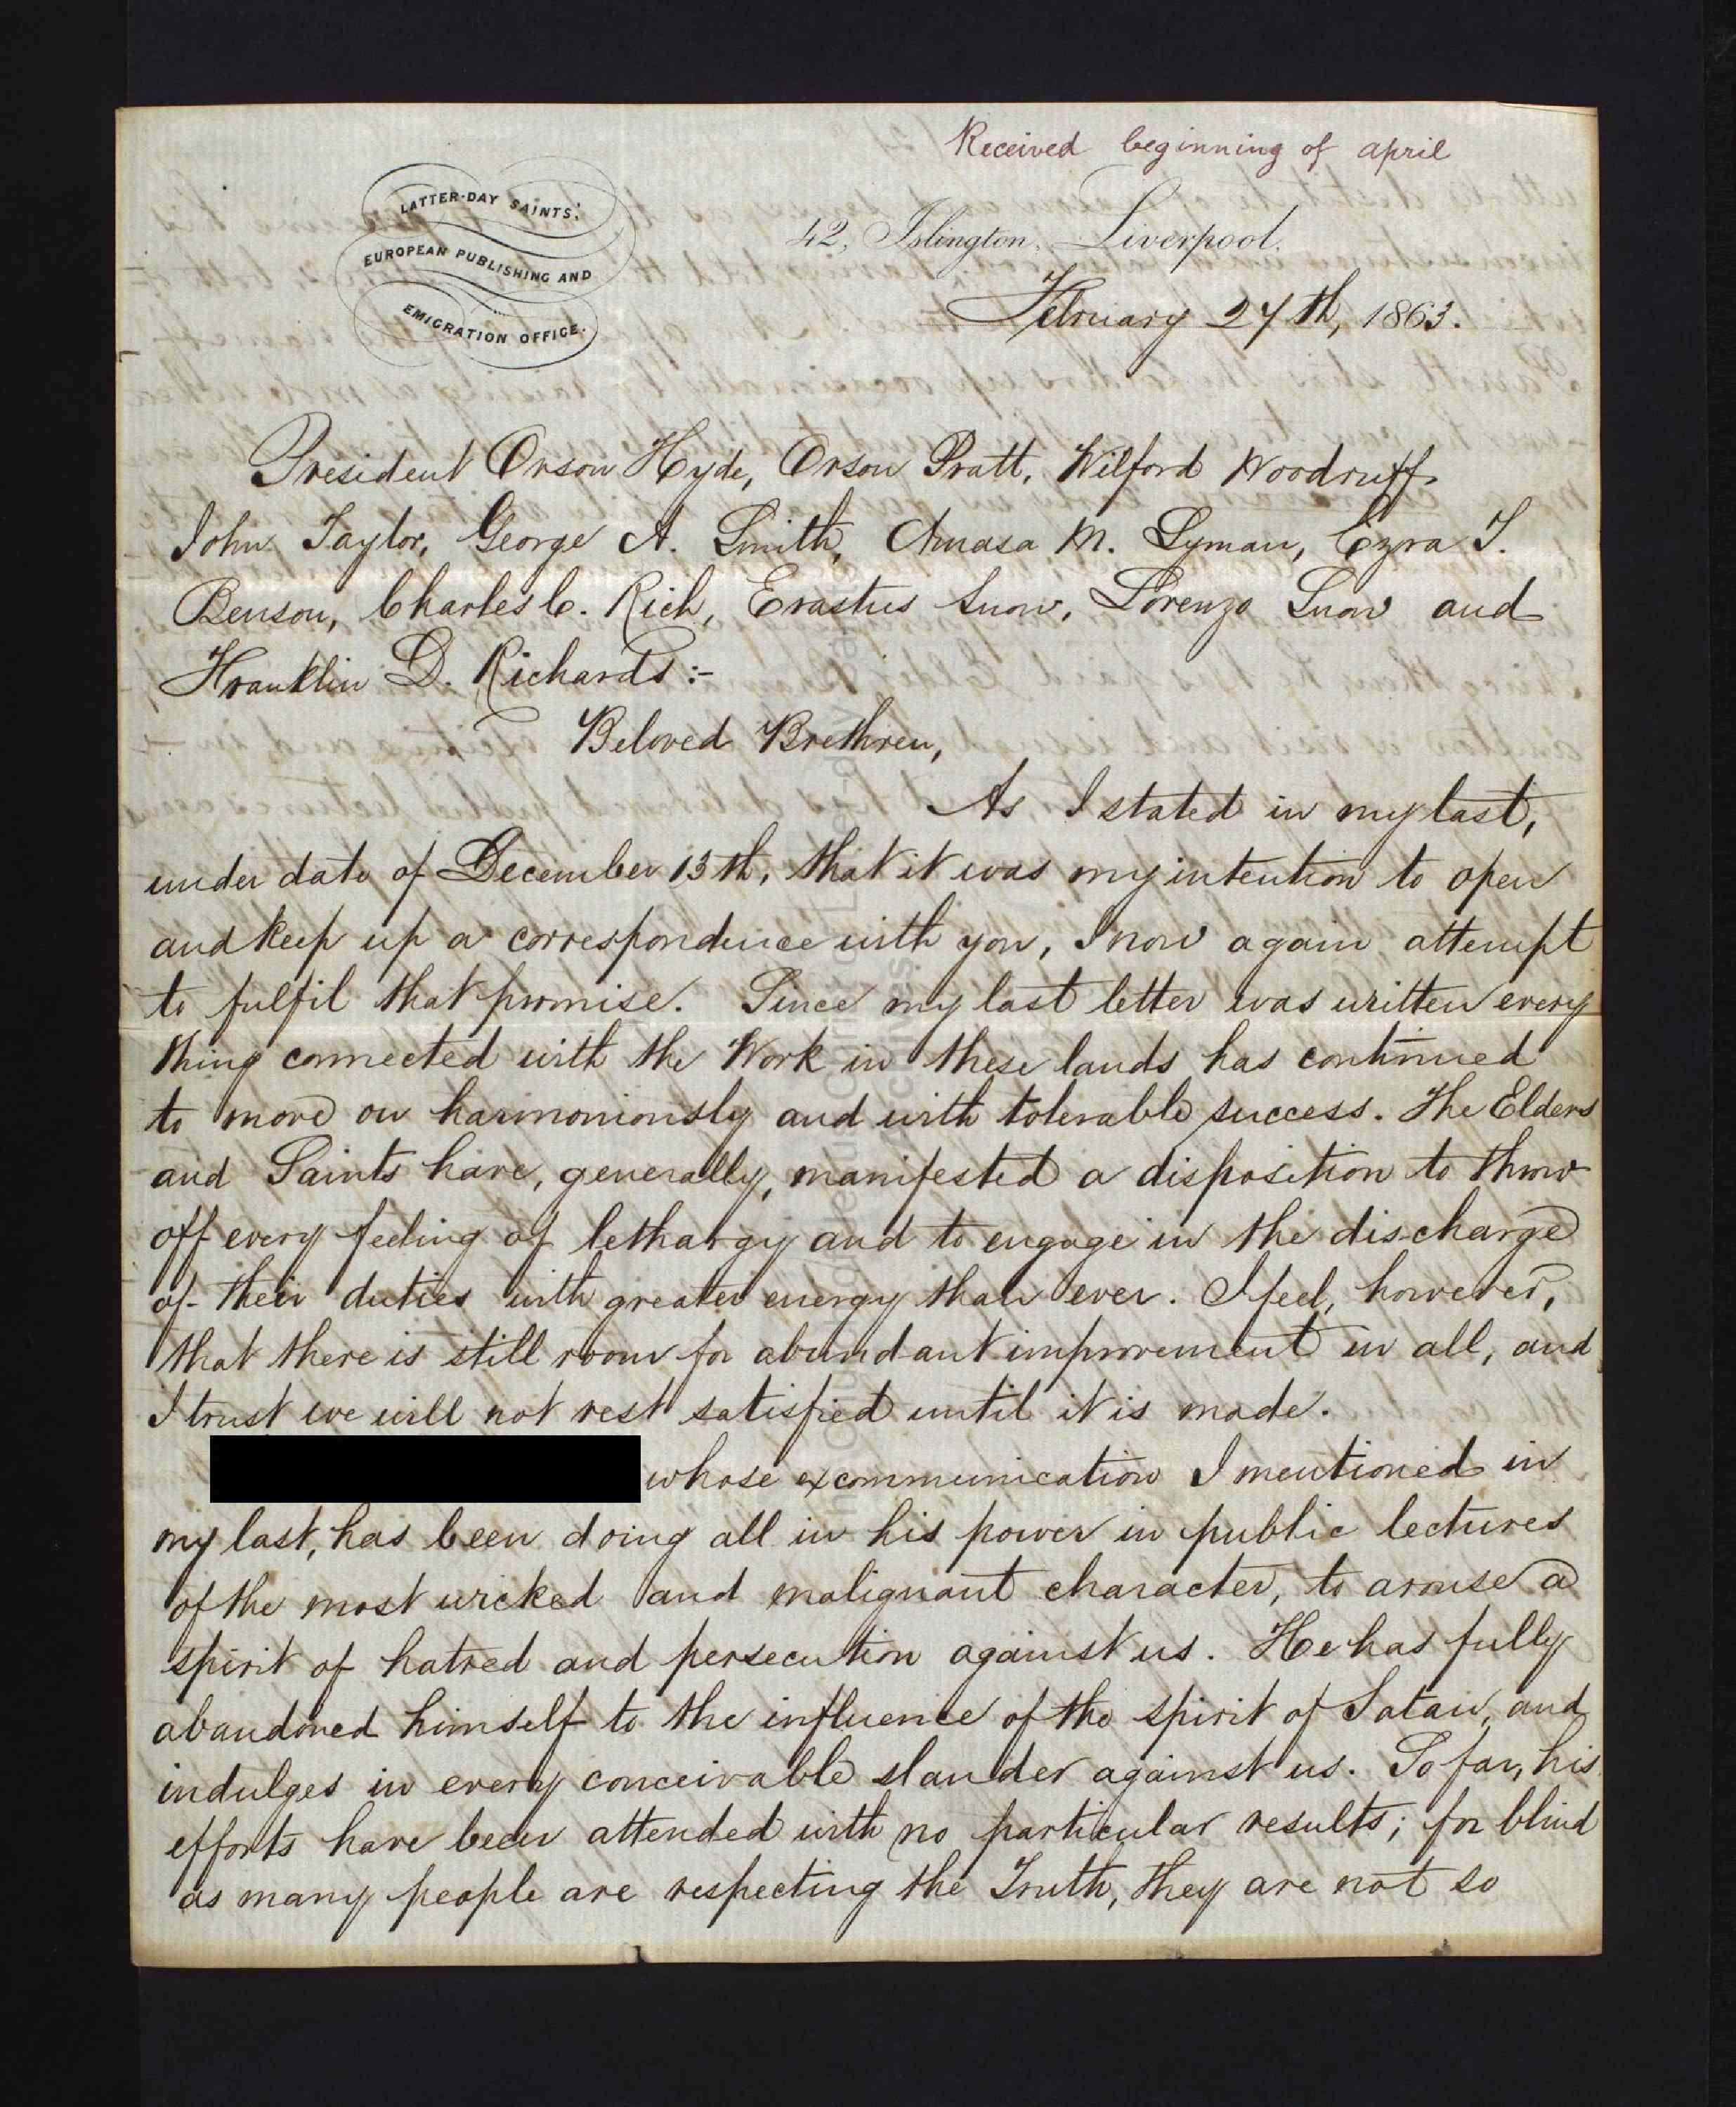 Received beginning of april
LATTER-DAY SAINTS'
EUROPEAN PUBLISHING AND
EMIGRATION OFFICE.
42, Islington, Liverpool.
February 27th, 1863.
President Orson Hyde, Orson Pratt, Wilford Woodruff,
John Taylor, George A. Smith, Amasa M. Lyman, Ezra T.
Benson, Charles C. Rich, Erastus Snow, Lorenzo Snow and
Franklin D. Richards:-
Beloved Brethren,
As I stated in my last,
under date of December 13th, that it was my intention to open
and keep up a correspondence with you, I now again attempt
to fulfil that promise. Since my last letter was written every
thing connected with the Work in these lands has continued
to move on harmoniously and with tolerable success. The Elders
and Saints have, generally, manifested a disposition to throw
off every feeling of lethargy and to engage in the discharge
of their duties with greater energy than ever. I feel, however,
that there is still room for abundant improvement in all, and
I trust we will not rest satisfied until it is made.
whose excommunication I mentioned in
my last, has been doing all in his power in public lectures
of the most wicked and malignant character, to arouse a
spirit of hatred and persecution against us. He has fully
abandoned himself to the influence of the spirit of Satan, and
indulges in every conceivable slander against us. So far, his
efforts have been attended with no particular results; for blind
as many people are respecting the Truth, they are not so